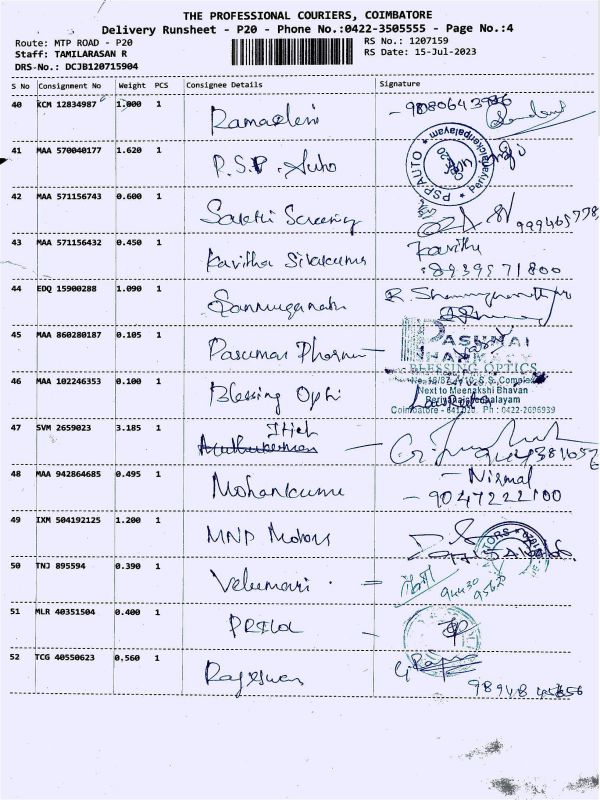 THE PROFESSIONAL COURIERS, COIMBATORE
Delivery Runsheet - P20 - Phone No.:0422-3505555 - Page No.:4
Route: MTP ROAD - P20
Staff: TAMILARASAN R
DRS-No.: DCJB120715904
RS No.: 1207159
RS Date: 15-Jul-2023
S No Consignment No Weight PCS Consignee Details Signature
40 KCM 12834987 1.000 1
41 MAA 570040177 1.620 1 P.S.P. Auto
PSP AUTO
Periyanaickenpalayam
42 MAA 571156743 0.600 1 Sakthi Screening
43 MAA 571156432 0.450 1 Kavitha Sivakumar Kavitha
8939571800
44 EDQ 15900288 1.090 1
45 MAA 860280187 0.105 1 Pasumai Pharm
PASUMAI
PHARMACY
46 MAA 102246353 0.100 1 Blessing Opti
BLESSING OPTICS
Next to Meenakshi Bhavan
Periyanaickenpalayam
Coimbatore - 641020. Ph : 0422-2696939
47 SVM 2659023 3.185 1
48 MAA 942864685 0.495 1 Mohankumar - Nirmal
- 9047222100
49 IXM 504192125 1.200 1 MNP Motors
50 TNJ 895594 0.390 1 Velumari
51 MLR 40351504 0.400 1 PRICOL
52 TCG 40550623 0.560 1 Rajeswari